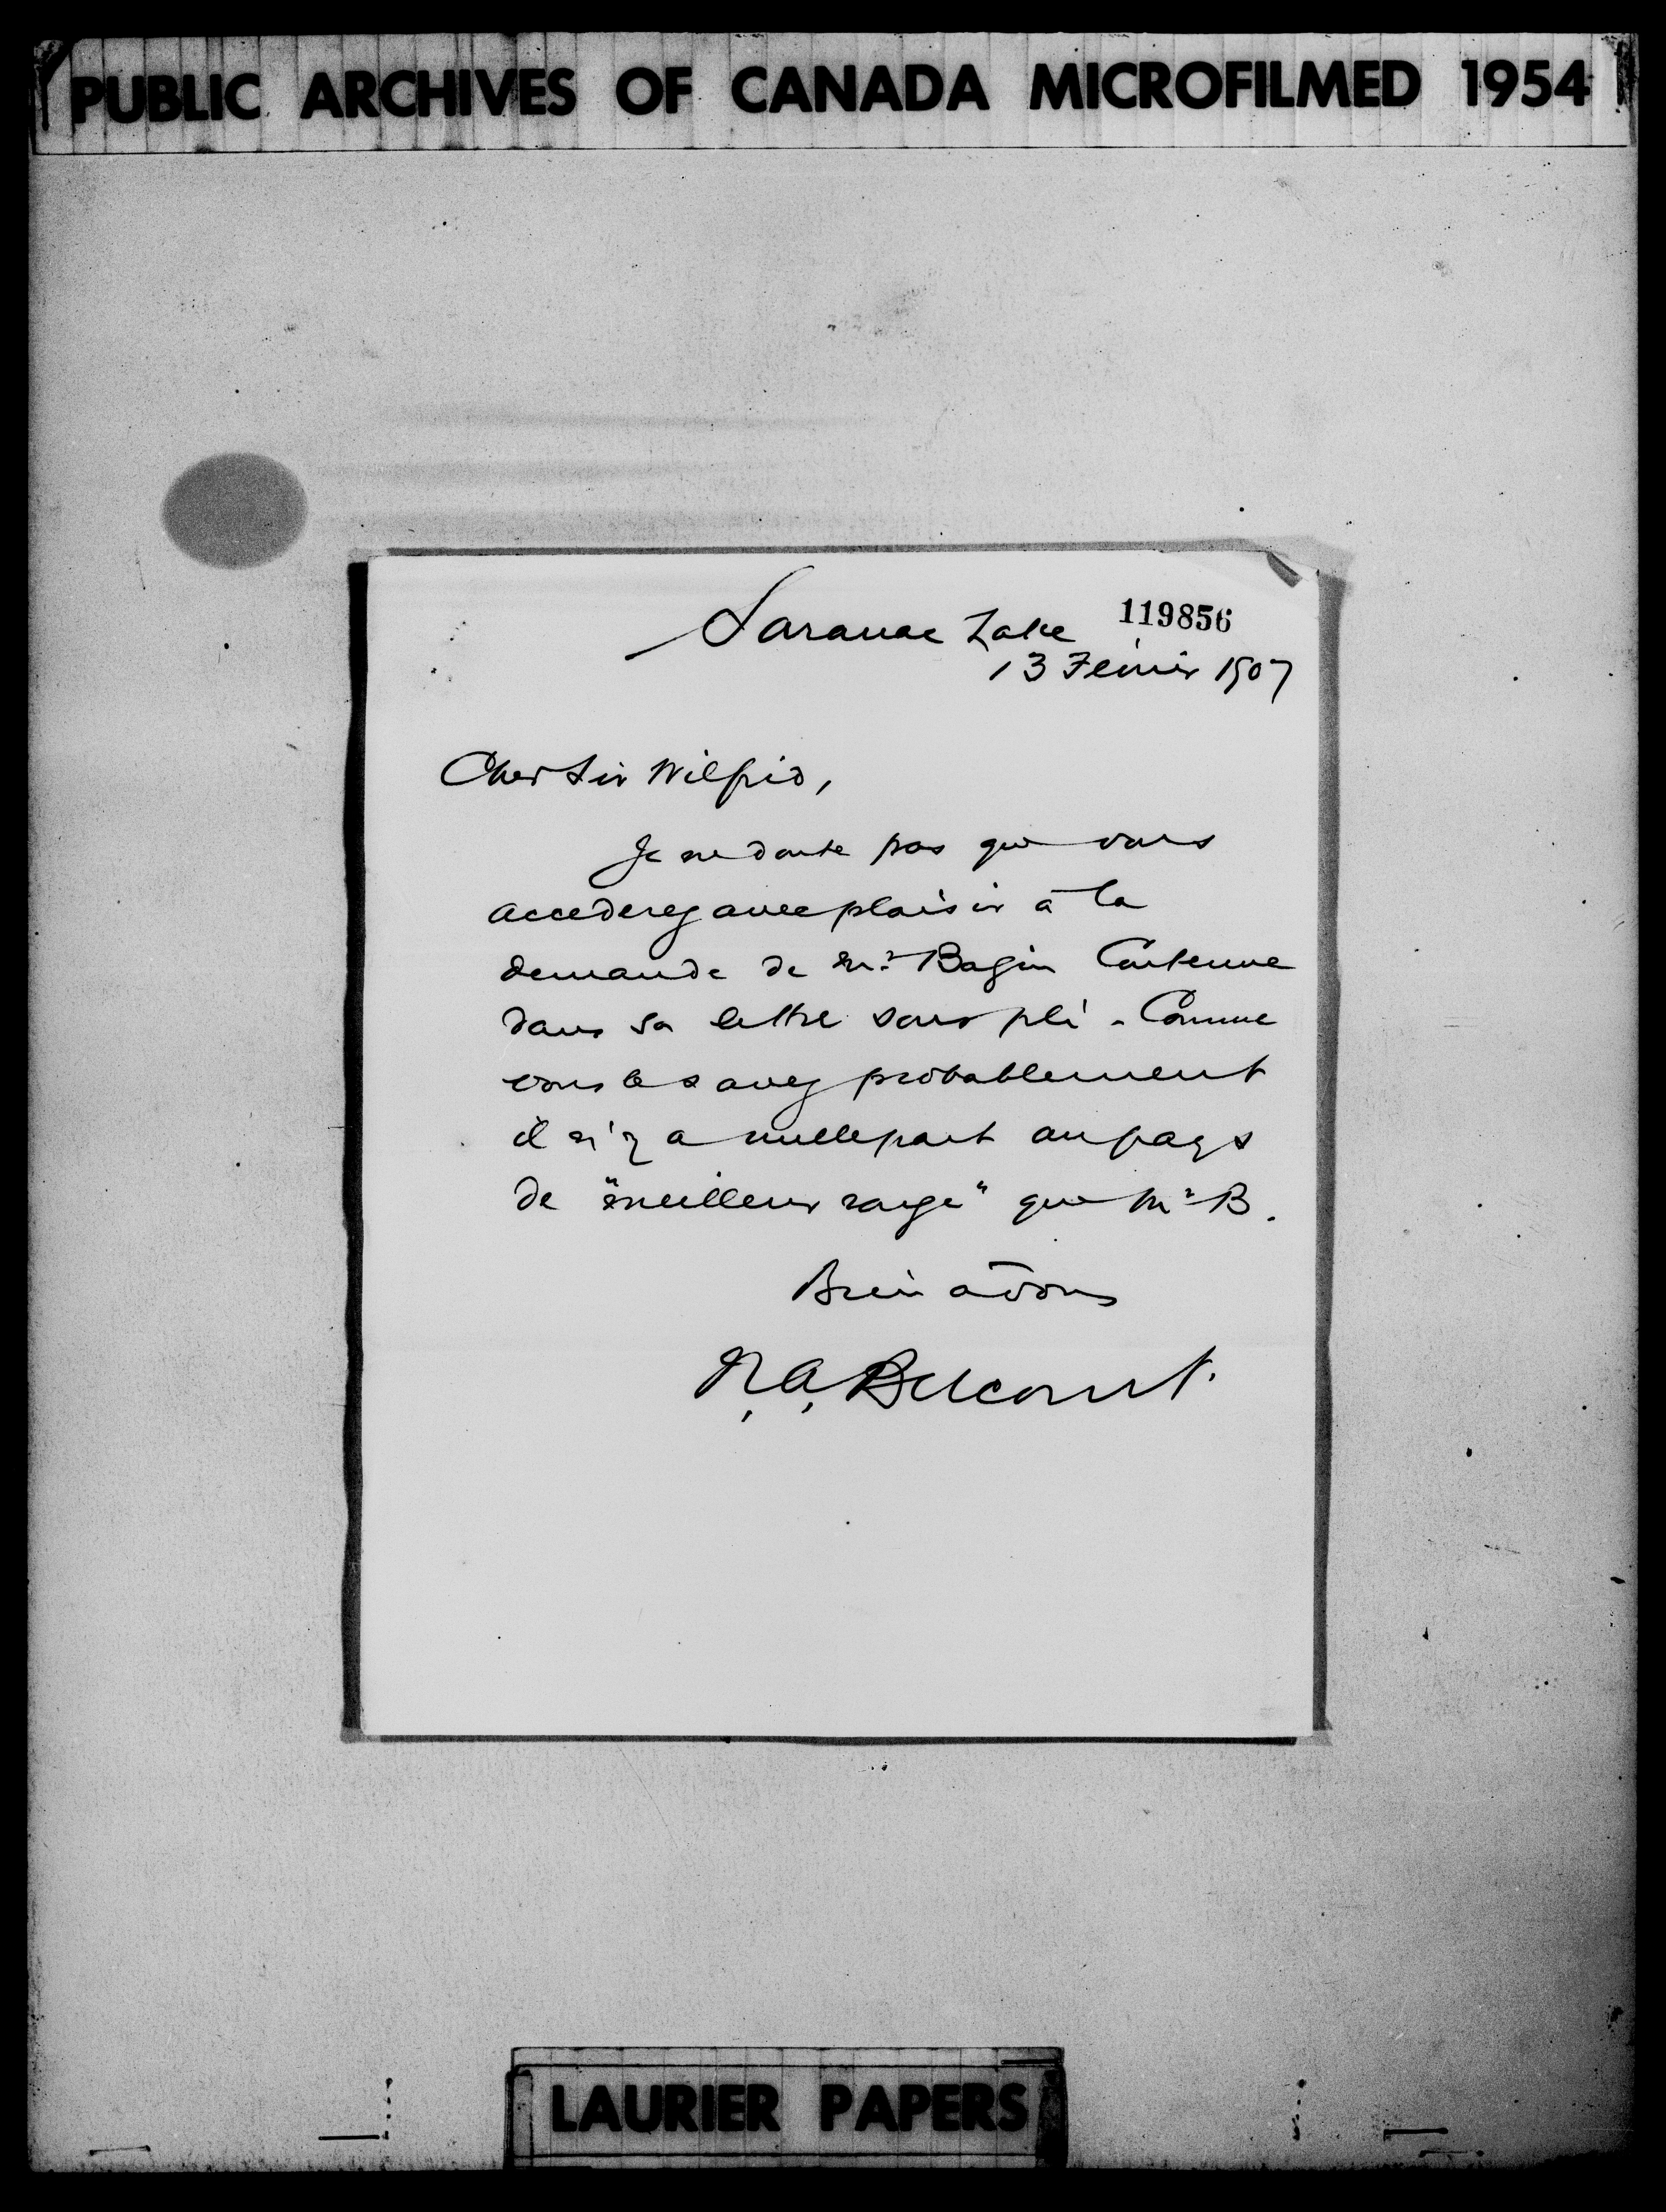 PUBLIC ARCHIVES OF CANADA MICROFILMED 1954
Saranac Lake 119856
13 Février 1907
Cher Sir Wilfrid,
Je ne doute pas que vous
accederez avec plaisir à la
demande de Mr. Bazin Contenue
dans sa lettre sous pli - Comme
vous le savez probablement
il n'y a nulle part au pays
de "meilleur rouge" que Mr B.
Bien à vous
N.A. Belcourt.
LAURIER PAPERS